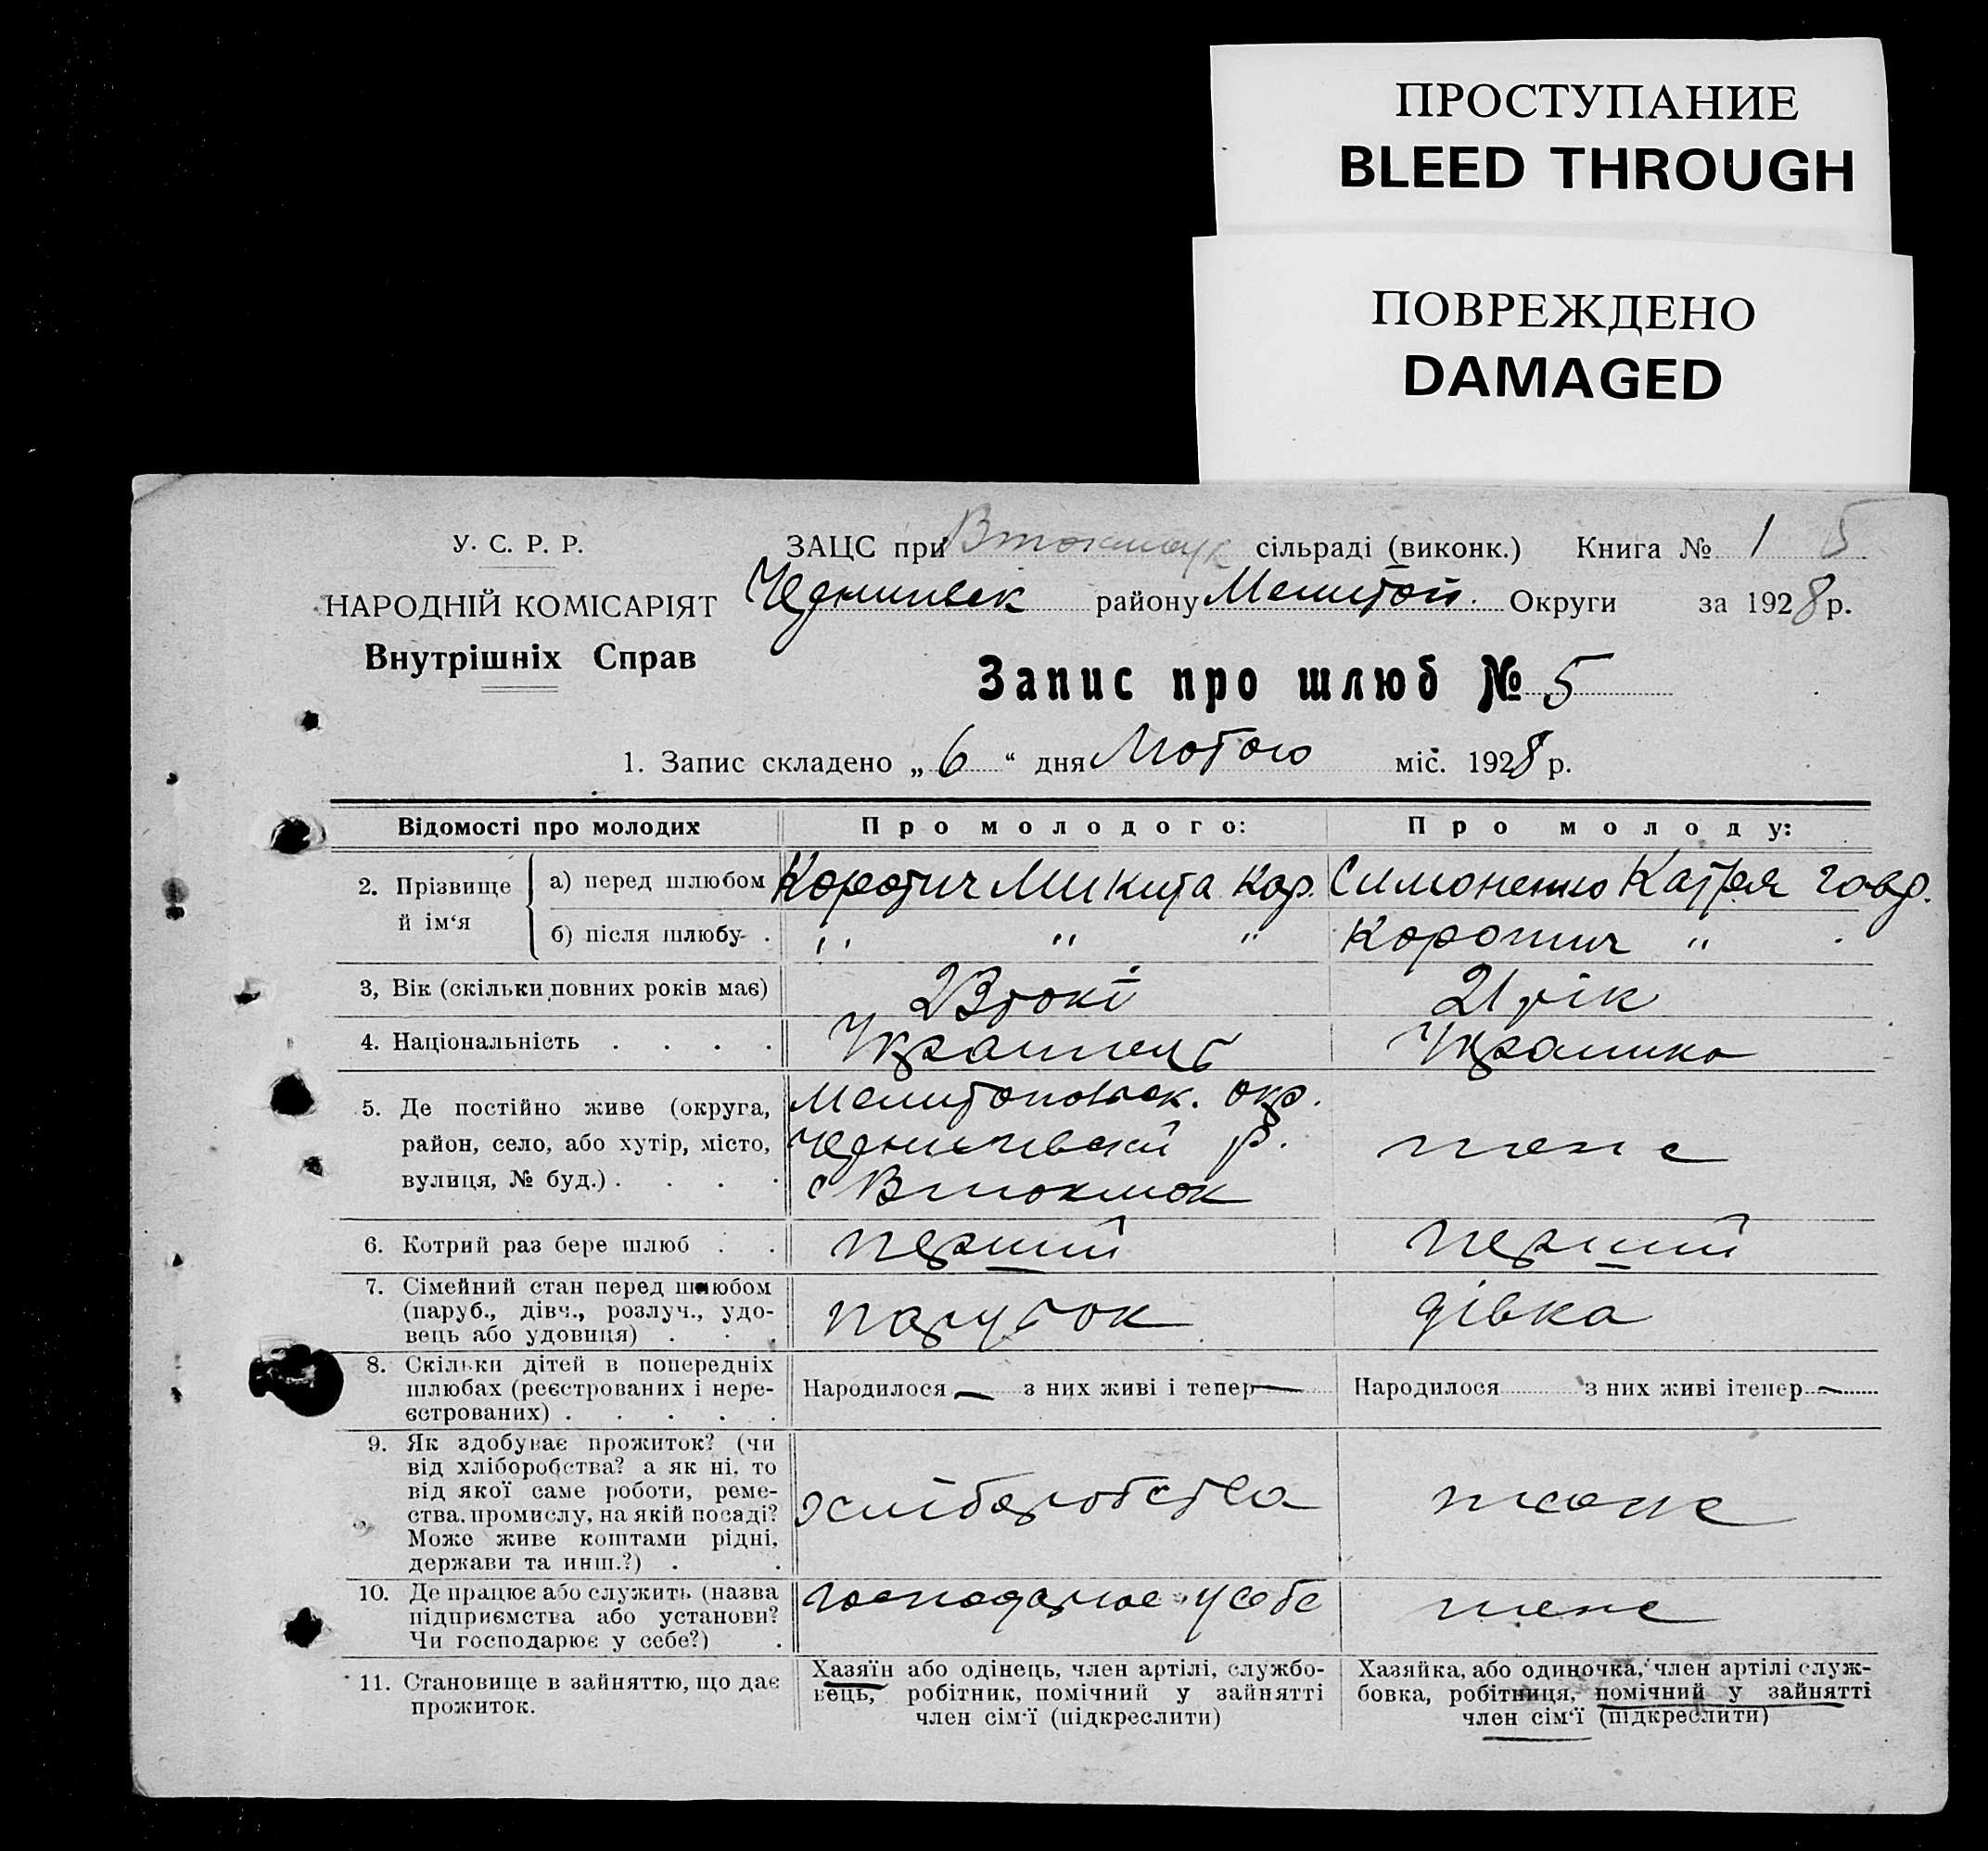 ПРОСТУПАНИЕ
BLEED THROUGH
ПОВРЕЖДЕНО
DAMAGED
У. С. Р. Р.
НАРОДНІЙ КОМІСАРІЯТ
Внутрішніх Справ
ЗАЦС при сільраді (виконк.) Книга № 1 5
району Мелитоп. Округи за 1928 р.
Запис про шлюб № 5
1. Запис складено „ 6 “ дня Лютого міс. 1928 р.
Відомості про молодих
Про молодого:
Про молоду:
2. Прізвище й ім‘я
а) перед шлюбом
Коротич Микита Кар.
Симоненко Катря Гавр.
б) після шлюбу .
" " "
Коротич "
3, Вік (скільки повних років має)
23 рокі
21 рік
4. Національність . . . .
Українець
Українка
5. Де постійно живе (округа,
район, село, або хутір, місто,
вулиця, № буд.) . . . .
Мелитопольск. окр.
р.
с Втокмак
теж
6. Котрий раз бере шлюб . .
перший
перший
7. Сімейний стан перед шлюбом
(паруб., дівч., розлуч., удо-
вець або удовиця) . . .
парубок
дівка
8. Скільки дітей в попередніх
шлюбах (реєстрованих і нере-
єстрованих) . . . . .
Народилося — з них живі і тепер —
Народилося з них живі ітепер —
9. Як здобуває прожиток? (чи
від хліборобства? а як ні, то
від якої саме роботи, реме-
ства, промислу, на якій посаді?
Може живе коштами рідні,
держави та инш.?) . .
хліборобства
10. Де працює або служить (назва
підприємства або установи?
Чи господарює у себе?) .
господарює у себе
11. Становище в зайняттю, що дає
прожиток.
Хазяїн або одінець, член артілі, службо-
вець, робітник, помічний у зайнятті
член сім‘ї (підкреслити)
Хазяйка, або одиночка, член артілі служ-
бовка, робітниця, помічний у зайнятті
член сім‘ї (підкреслити)